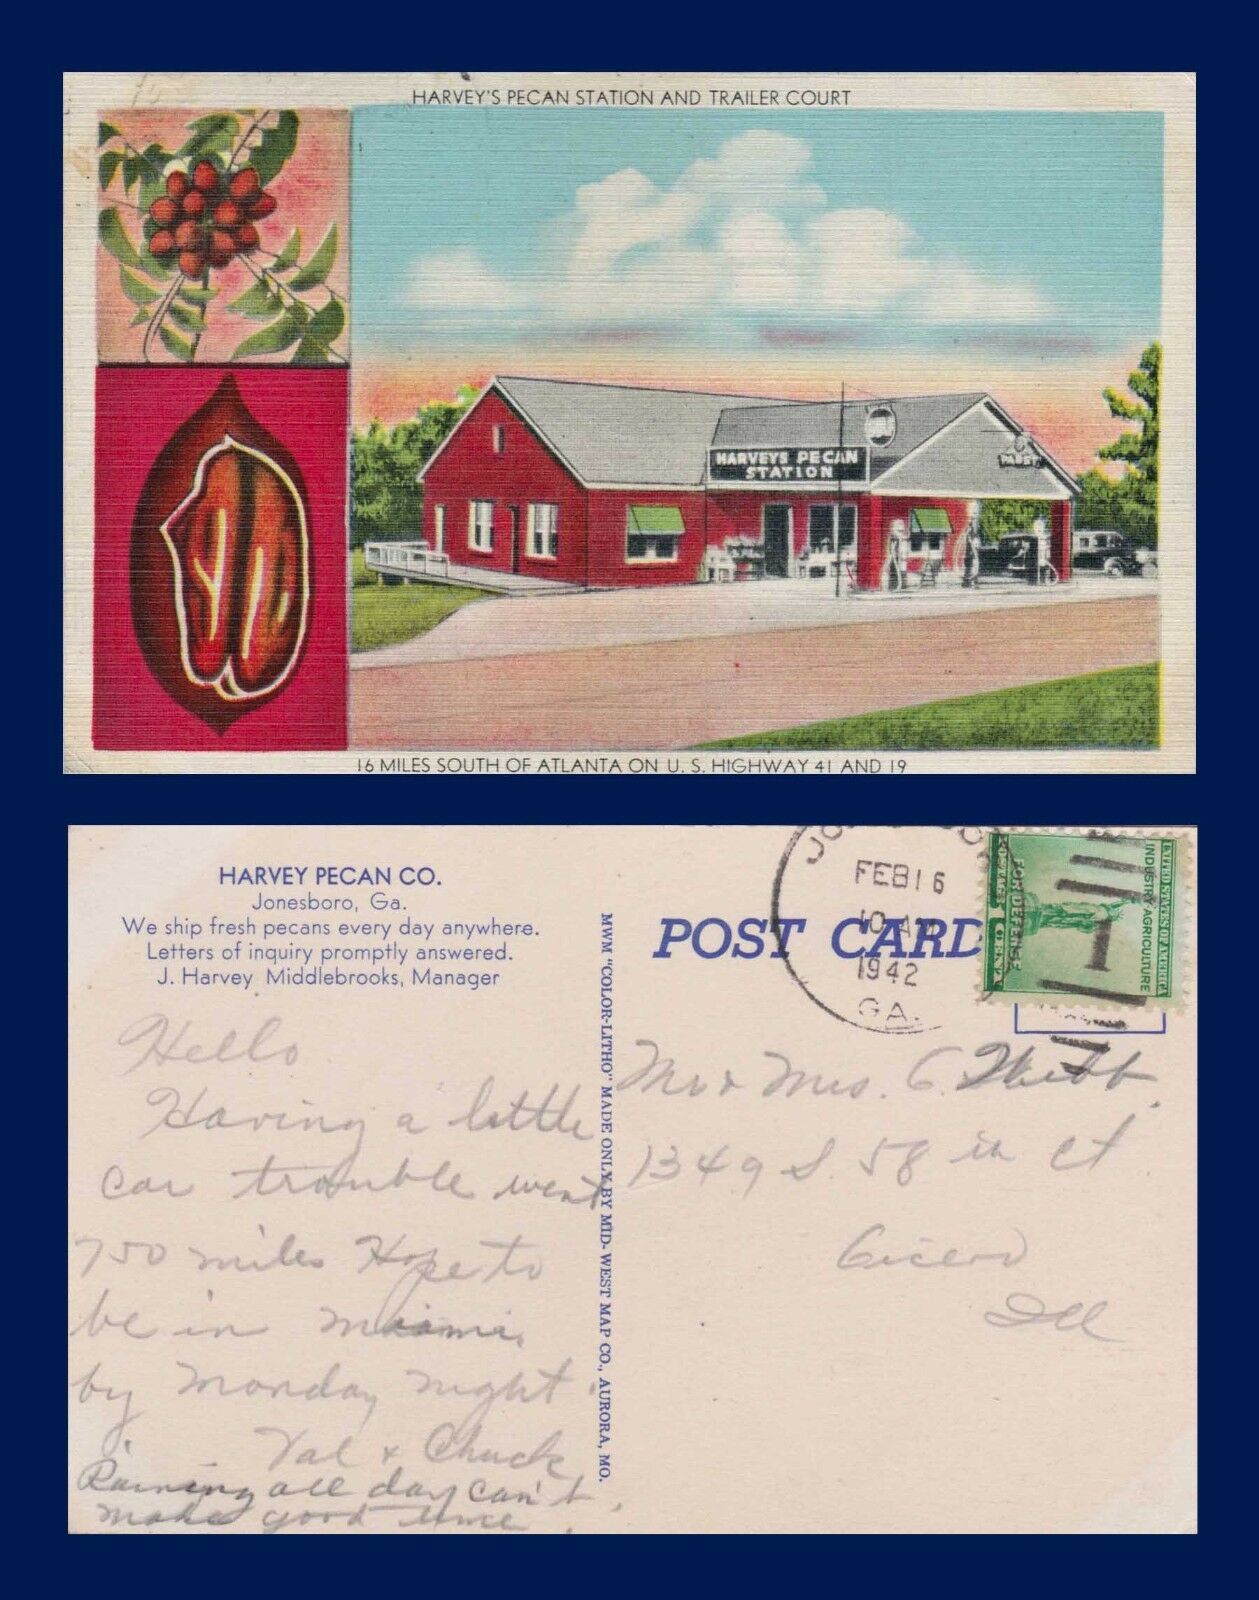 HARVEY'S PECAN STATION AND TRAILER COURT
HARVEYS PECAN
STATION
16 MILES SOUTH OF ATLANTA ON U. S. HIGHWAY 41 AND 19
HARVEY PECAN CO.
Jonesboro, Ga.
We ship fresh pecans every day anywhere.
Letters of inquiry promptly answered.
J. Harvey Middlebrooks, Manager
Hello
Having a little
car trouble went
750 miles Hope to
be in Miami
by Monday night.
Val & Chuck
Raining all day can't
make good time.
MWM "COLOR-LITHO" MADE ONLY BY MID-WEST MAP CO., AURORA, MO.
POST CARD
FEB 16
10 AM
1942
GA.
UNITED STATES OF AMERICA
INDUSTRY AGRICULTURE
FOR DEFENSE
POSTAGE 1 CENT
1
Mr & Mrs. C. Webb.
1349 S. 58 th Ct.
Cicero
Ill